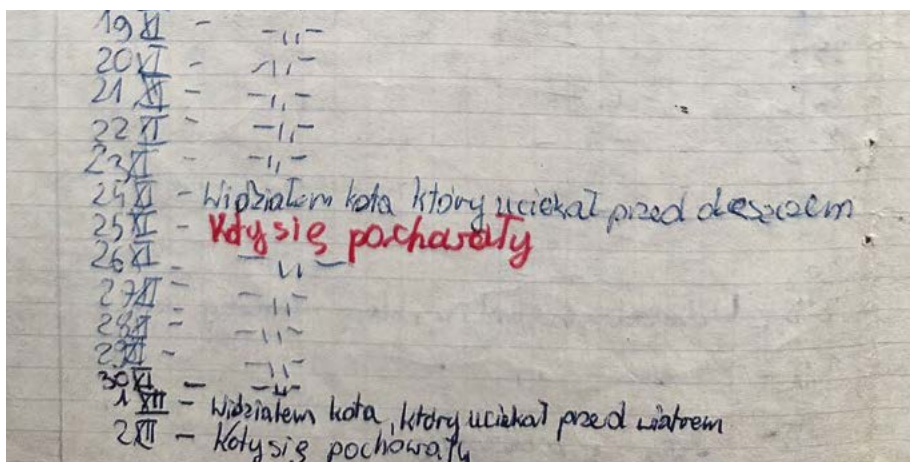 19 XI - -11-
20 XI - -11-
21 XI - -11-
22 XI - -11-
23 XI - -11-
24 XI - Widziałem kota który uciekał przed deszczem
25 XI - Koty się pochowały
26 XI - -11-
27 XI - -11-
28 XI - -11-
29 XI - -11-
30 XI - -11-
1 XII - Widziałem kota, który uciekał przed wiatrem
2 XII - Koty się pochowały